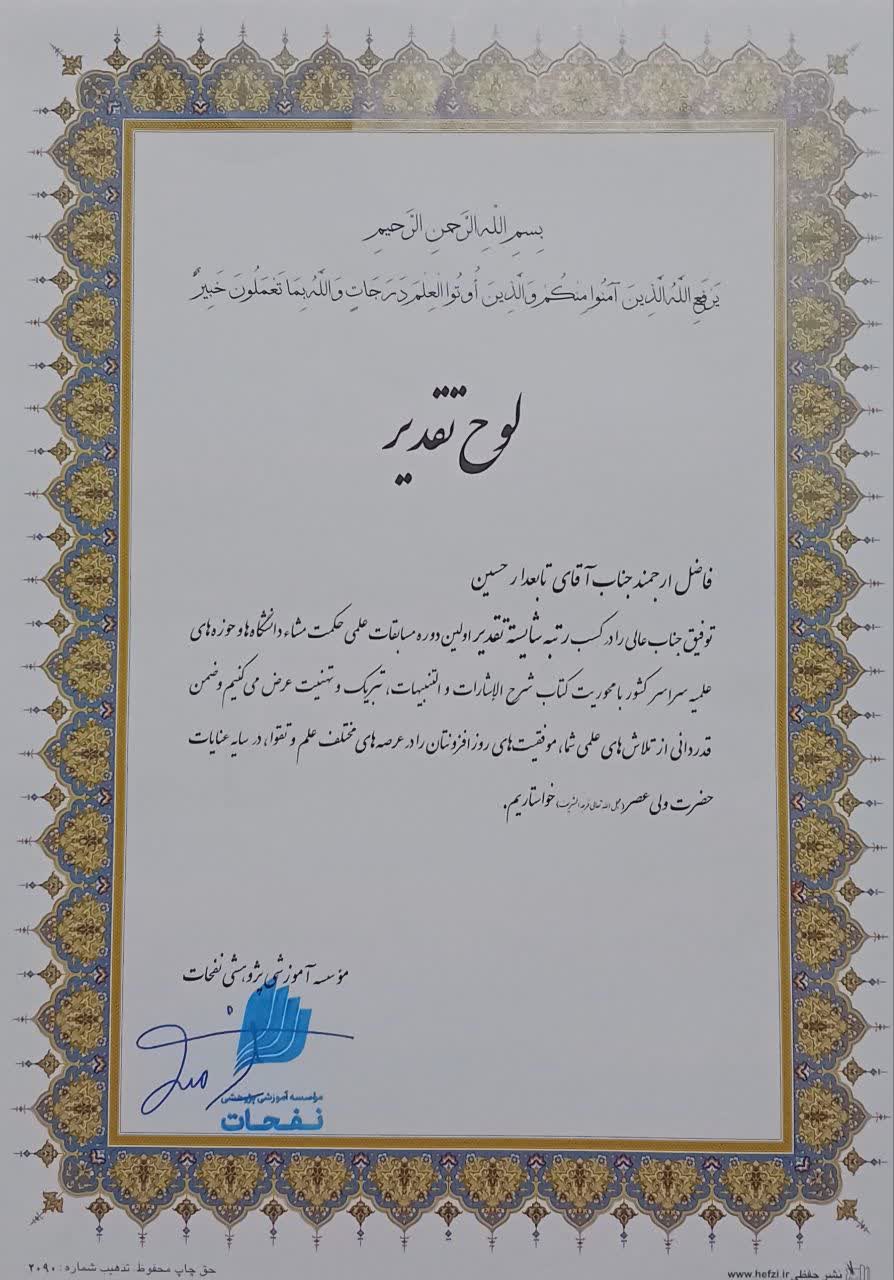 بِسمِ اللهِ الرَّحمنِ الرَّحیمِ
یَرفَعِ اللهُ الَّذِینَ آمَنُوا مِنکُم وَالَّذِینَ أُوتُوا العِلمَ دَرَجَاتٍ وَاللهُ بِمَا تَعمَلُونَ خَبِیرٌ
لوح تقدیر
فاضل ارجمند جناب آقای تابعدار حسین
توفیق جناب عالی را در کسب رتبه شایسته تقدیر اولین دوره مسابقات علمی حکمت مشاء دانشگاه ها و حوزه های
علمیه سراسر کشور با محوریت کتاب شرح الإشارات و التنبیهات، تبریک و تهنیت عرض می کنیم و ضمن
قدردانی از تلاش های علمی شما، موفقیت های روز افزونتان را در عرصه های مختلف علم و تقوا، در سایه عنایات
حضرت ولی عصر (عجل الله تعالی فرجه الشریف) خواستاریم.
مؤسسه آموزشی پژوهشی نفحات
مؤسسه آموزشی پژوهشی
نفحات
حق چاپ محفوظ. تذهیب شماره: ۲۰۹۰
نشر حفظی www.hefzi.ir